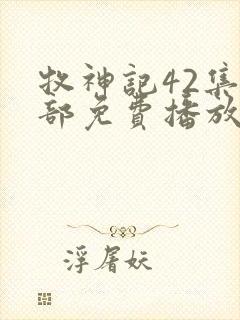 牧神記42集
部免費播放
浮屠妖